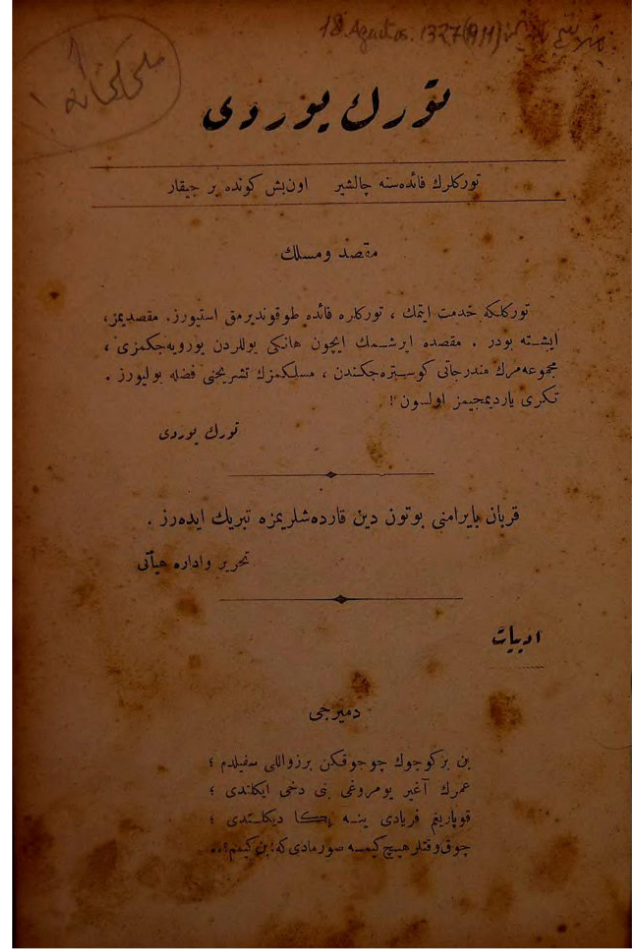 18 Agustos. 1327 (1911)
تورك يوردى
توركلرك فائده‌سنه چاليشير   اون‌بش كونده بر چيقار
مقصد ومسلك
توركلكه خدمت ايتمك ، توركلره فائده طوقونديرمق استيورز. مقصديمز،
ايشته بودر . مقصده ايرشمك ايچون هانكى يوللردن يورويه‌جكمزى ،
مجموعه‌مزك مندرجاتى كوستره‌جكندن ، مسلكمزك تشريحنى فضله بوليورز .
تكرى يارديمجيمز اولسون !
تورك يوردى
قربان بايرامنى بوتون دين قارده‌شلريمزه تبريك ايده‌رز .
تحرير واداره هيأتى
ادبيات
دميرجى
بن بر كوچوك چوجوقكن بر زواللى سفيلدم ؛
عمرك آغير يومروغى بنى دخى ايكلتدى ؛
قوپارديغم فريادى ينه بكا ديكلتدى ؛
چوق وقتلر هيچ كيمسه صورمادى كه: بن كيمم؟..